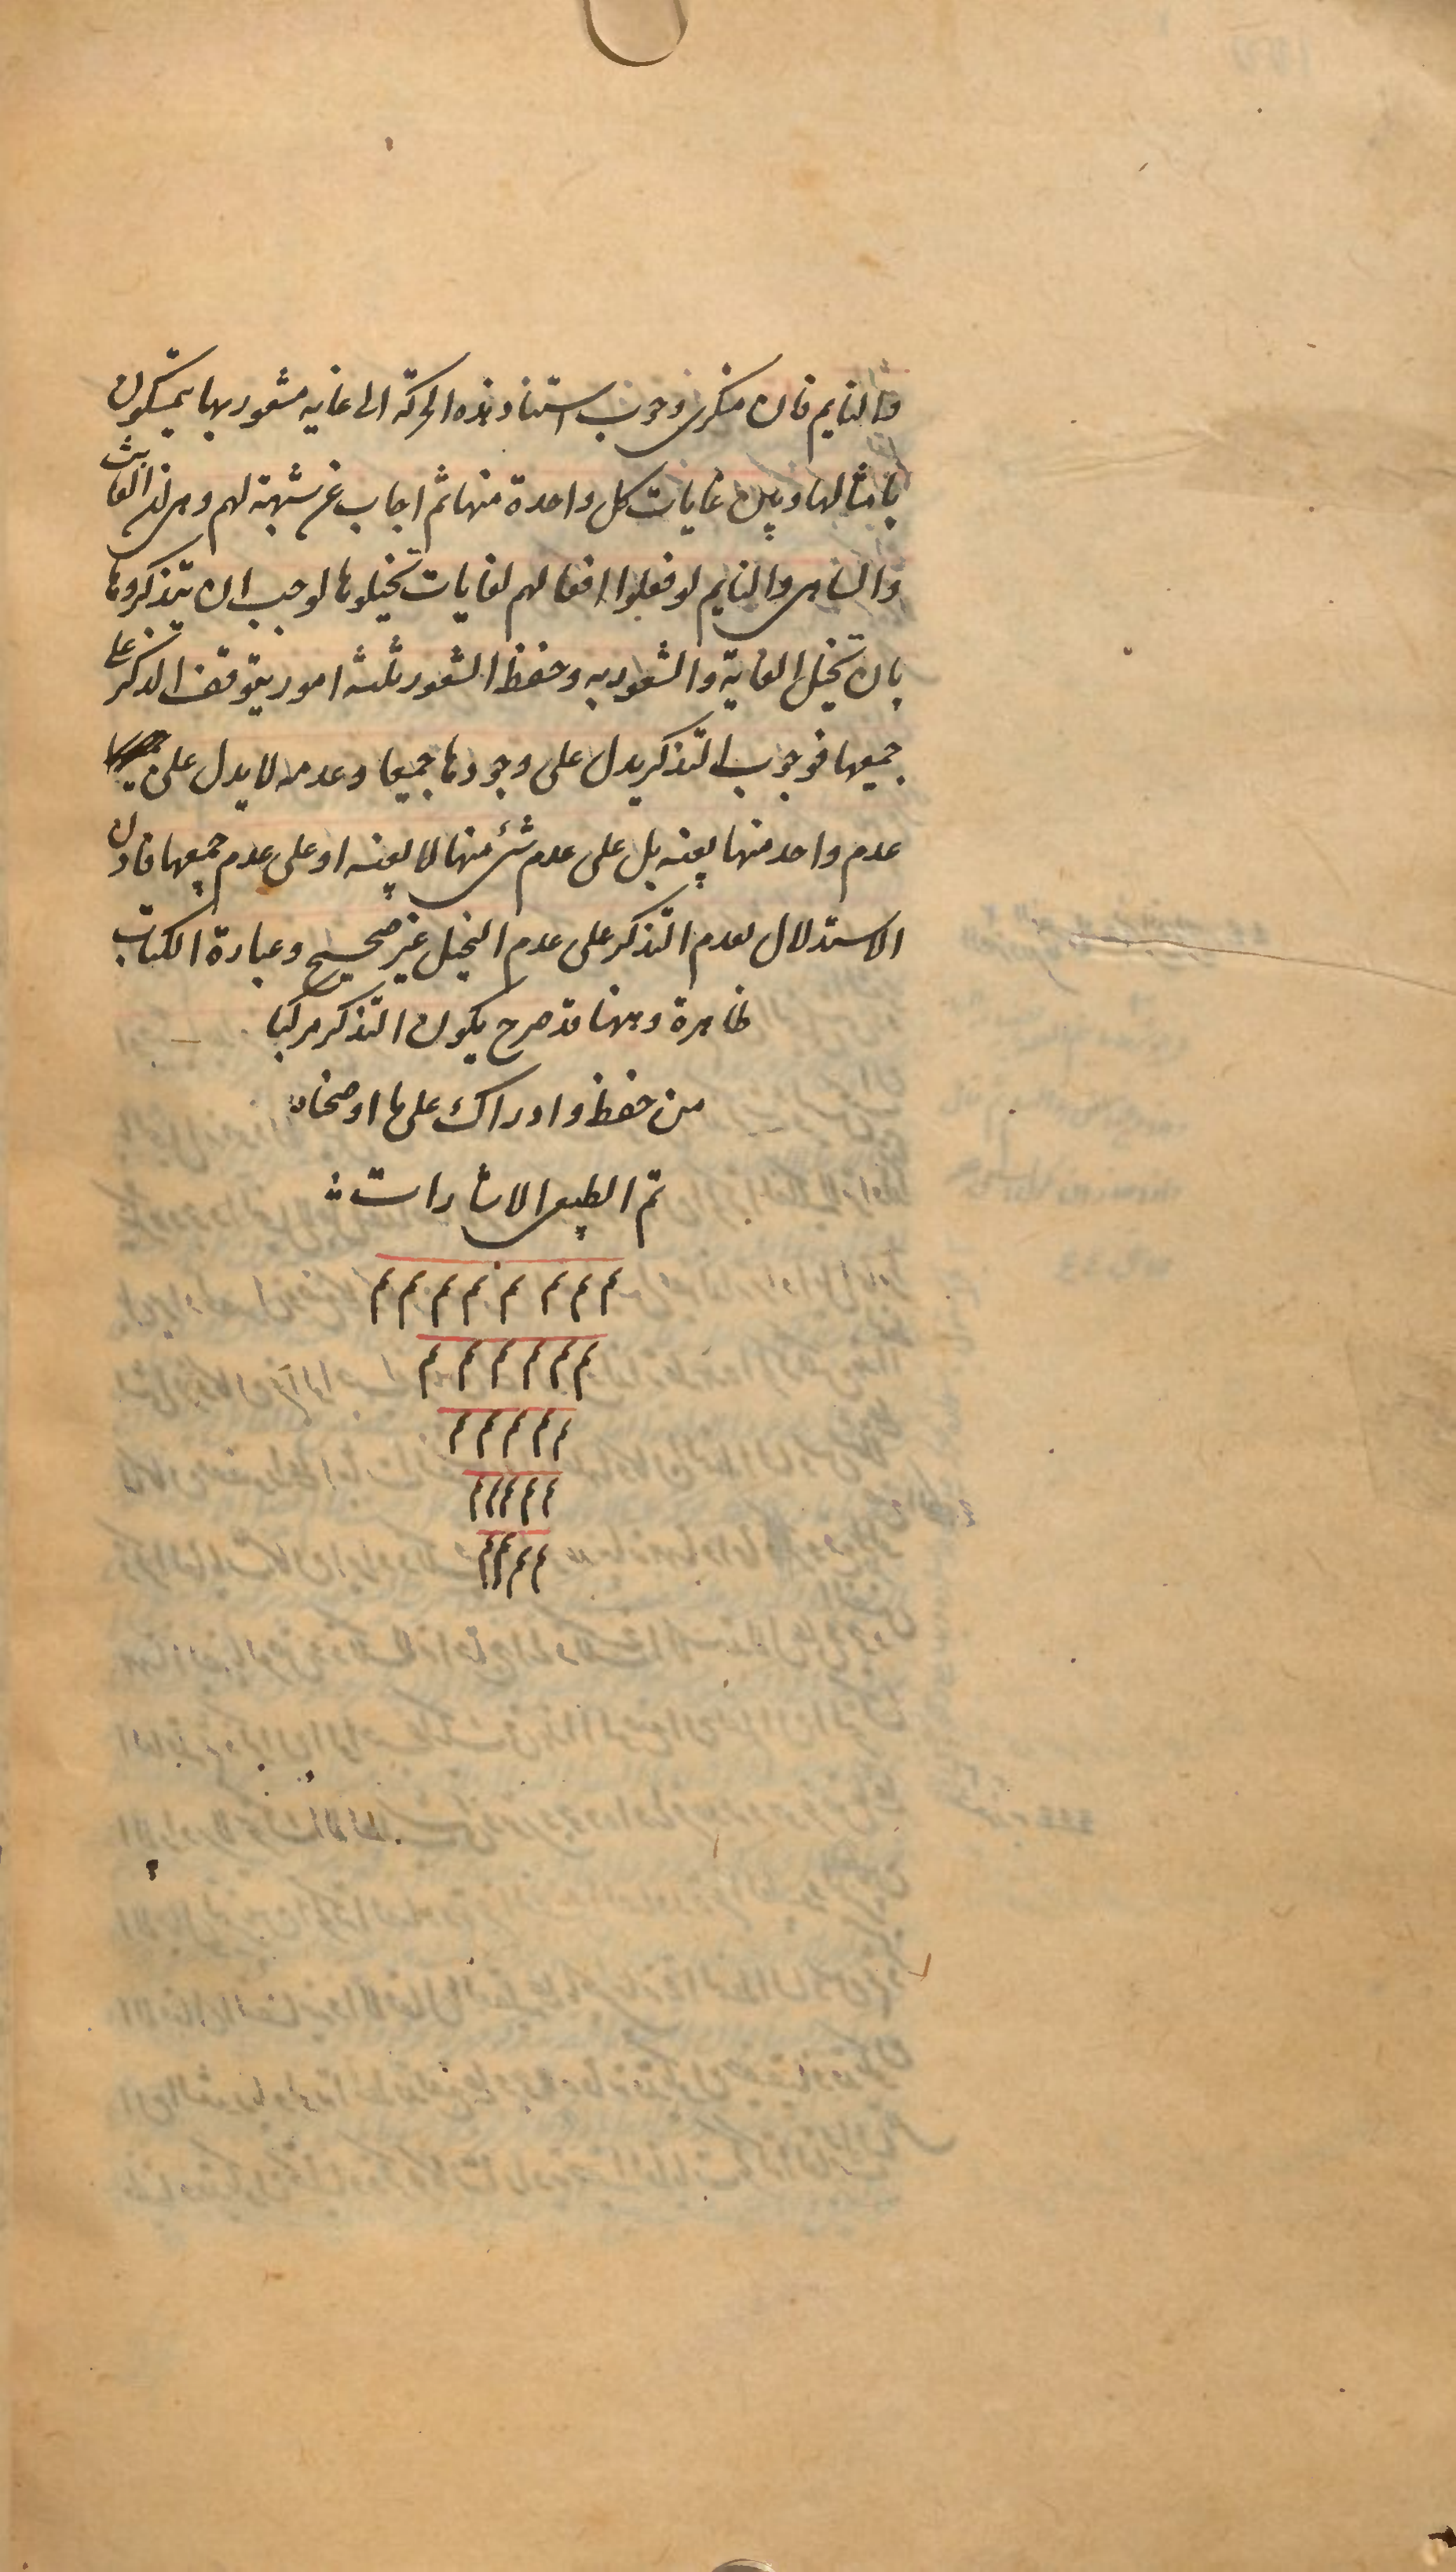 والنايم فان منكرى وجوب استناد هذه الحركة الى غاية مشعور بها يتمسكون
بامثالها وبين غايات كل واحدة منها ثم اجاب عن شبهة لهم وهى ان العابث
والساهى والنايم لو فعلوا افعالهم لغايات تخيلوها لوجب ان يتذكروها
بان تخيل الغاية والشعور به وحفظ الشعور ثلثه امور يتوقف التذكر على
جميعها فوجوب التذكر يدل على وجودها جميعا وعدمه لا يدل على
عدم واحد منها بعينه بل على عدم شئ منها لا بعينه او على عدم جميعها فاذن
الاستدلال بعدم التذكر على عدم التخيل غير صحيح وعبارة الكتاب
ظاهرة وههنا قد صرح بكون التذكر مركبا
من حفظ وادراك على ما اوضحناه
تم الطبيعى الاشارات
م م م م م م م م
م م م م م م
م م م م م
م م م م م
م م م م